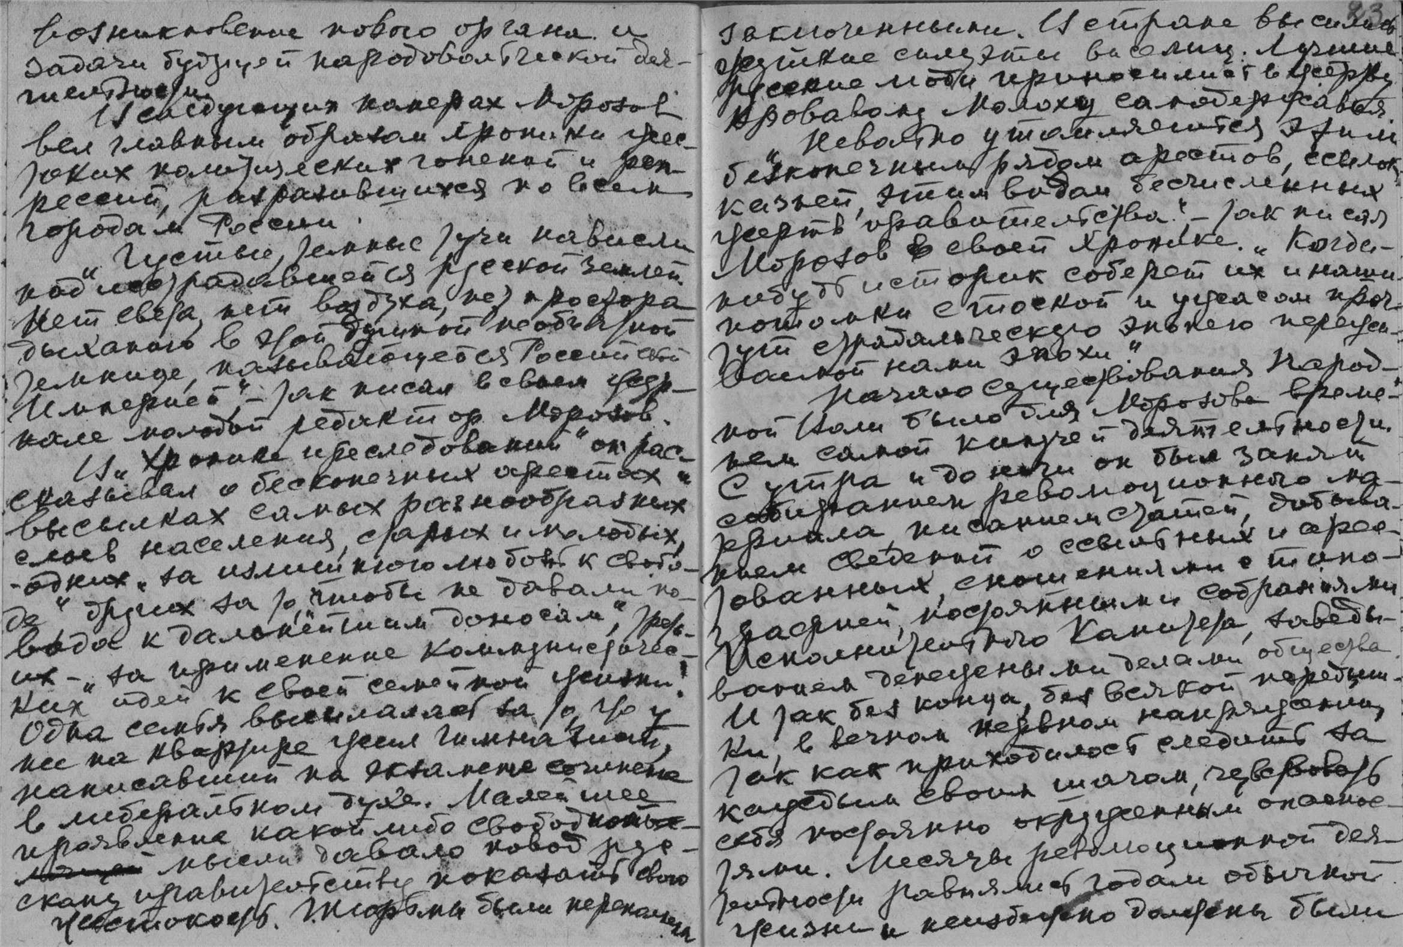 возникновение нового органа и
задачи будущей народовольческой дея-
тельности.
В следующих номерах Морозов
вел главным образом хронику жес-
токих политических гонений и реп-
рессий, разразившихся по всем
городам России.
"Густые, темные тучи нависли
над исстрадавшейся русской землей.
Нет света, нет воздуха, нет простора
дыханию в этой душной необъятной
темнице, называющейся Российской
Империей", – так писал в своем жур-
нале молодой редактор Морозов.
В "Хронике преследований" он рас-
сказывал о бесконечных арестах и
высылках самых разнообразных
слоев населения, старых и молодых,
- одних "за излишнюю любовь к свобо-
де" других за то, "чтобы не давали по-
вода к дальнейшим доносам", треть-
их – "за применение коммунистичес-
ких идей к своей семейной жизни!
Одна семья высылалась за то, что у
нее на квартире жил гимназист,
написавший на экзамене сочинение
в либеральном духе. Малейшее
проявление какой либо свободной
мысли давало повод рус-
скому правительству показать свою
жестокость. Тюрьмы были переполнены
23
заключенными. В стране высились
жуткие силуэты виселиц. Лучшие
русские люди приносились в жертву
кровавому Молоху самодержавия.
"Невольно утомляешься этим
бесконечным рядом арестов, ссылок,
казней, этим видом бесчисленных
жертв правительства." – так писал
Морозов в своей хронике. "Когда-
нибудь историк соберет их и наши
потомки с тоской и ужасом проч-
тут страдальческую эпопею пережи-
ваемой нами эпохи."
Начало существования "Народ-
ной Воли было для Морозова време-
нем самой кипучей деятельности.
С утра и до ночи он был занят
собиранием революционного ма-
териала, писанием статей, добыва-
нием сведений о ссыльных и арес-
тованных, сношениями с типо-
графией, постоянными собраниями
Исполнительного Комитета, заведы-
ванием денежными делами общества.
И так без конца, без всякой передыш-
ки, в вечном нервном напряжении,
так как приходилось следить за
каждым своим шагом, чувствовать
себя постоянно окруженным опаснос-
тями. Месяцы революционной дея-
тельности равнялись годам обычной
жизни и неизбежно должны были